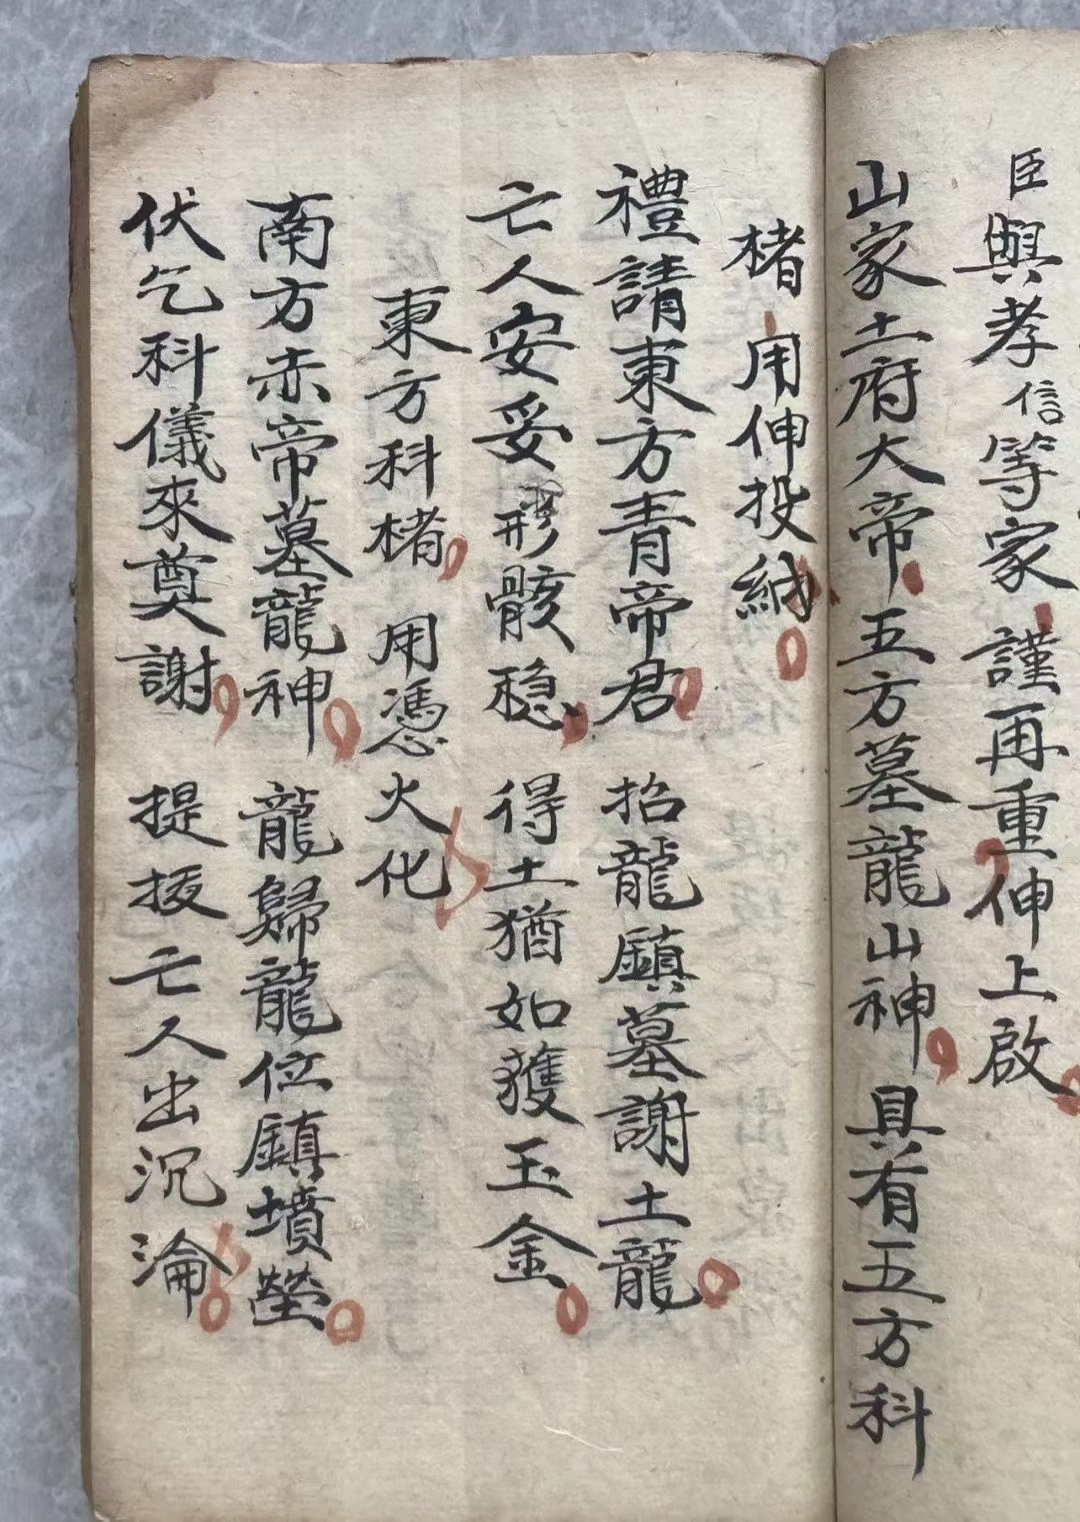 臣與孝信等家謹再重伸上啟
山家土府大帝五方墓龍山神具有五方科
楮用伸投納
禮請東方青帝君招龍鎮墓謝土龍
亡人安妥形骸稳得土猶如獲玉金
東方科楮用憑火化
南方赤帝墓龍神龍歸龍位鎮墳塋
伏乞科儀來奠謝提拔亡人出沉淪